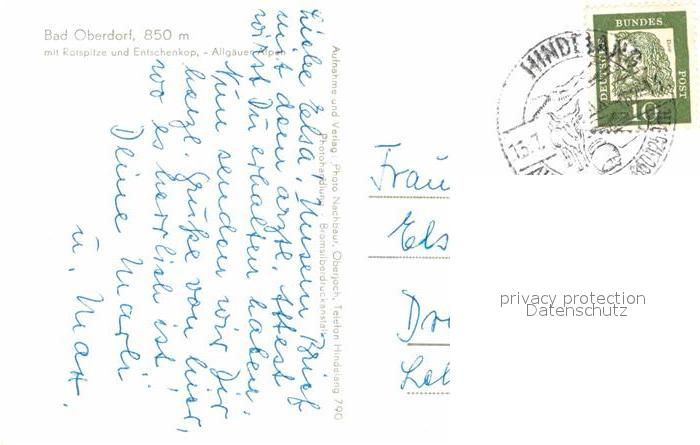 Bad Oberdorf, 850 m
mit Rotspitze und Entschenkop, - Allgäuer Alpen
Liebe Elsa! Unsern Brief
mit dem ärztl. Attest
wirst Du erhalten haben.
Nun senden wir Dir
herzl. Grüße von hier,
wo es herrlich ist.
Deine Marli
u. Max.
Aufnahme und Verlag: Photo Nachbaur, Oberjoch, Telefon Hindelang 790
Photohandlung - Bromsilberdruckanstalt
BUNDES
DEUTSCHE
POST
10
HINDELANG
15.7.
Frau
Els
Dr
privacy protection
Datenschutz